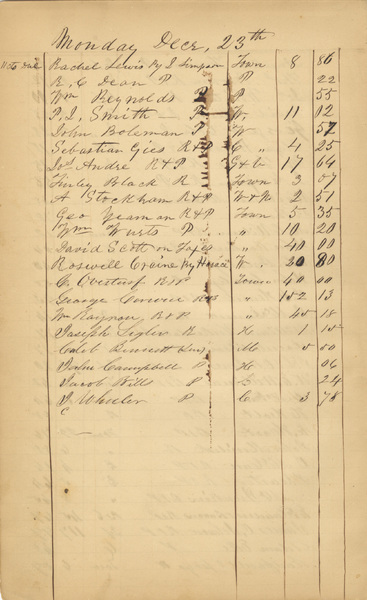 Monday Decr, 23th
Note Due Rachel Lewis By J Simpson Town 8 86
R. C Dean P P 22
Wm Reynolds P P 55
P. J. Smith P W. 11 12
John Boleman P W 57
Sebastian Gies R&P C " 4 25
Jos Andre R&P G&C 17 64
Finley Black R Town 3 07
A Stockham R&P W&P 2 51
Geo Yeaman R&P Town 5 35
Wm Wurts P " 10 20
David Scott on Taxes " 40 00
Roswell Craine By Horace W. 20 80
C. Overturf R&P Town 40 00
George Corwine R&P " 152 13
Wm Raynor, R&P " 45 18
Joseph R H 1 15
Caleb Bennett M 5 00
John Campbell P H 06
Jacob Will P S 24
J Wheeler P C 3 78